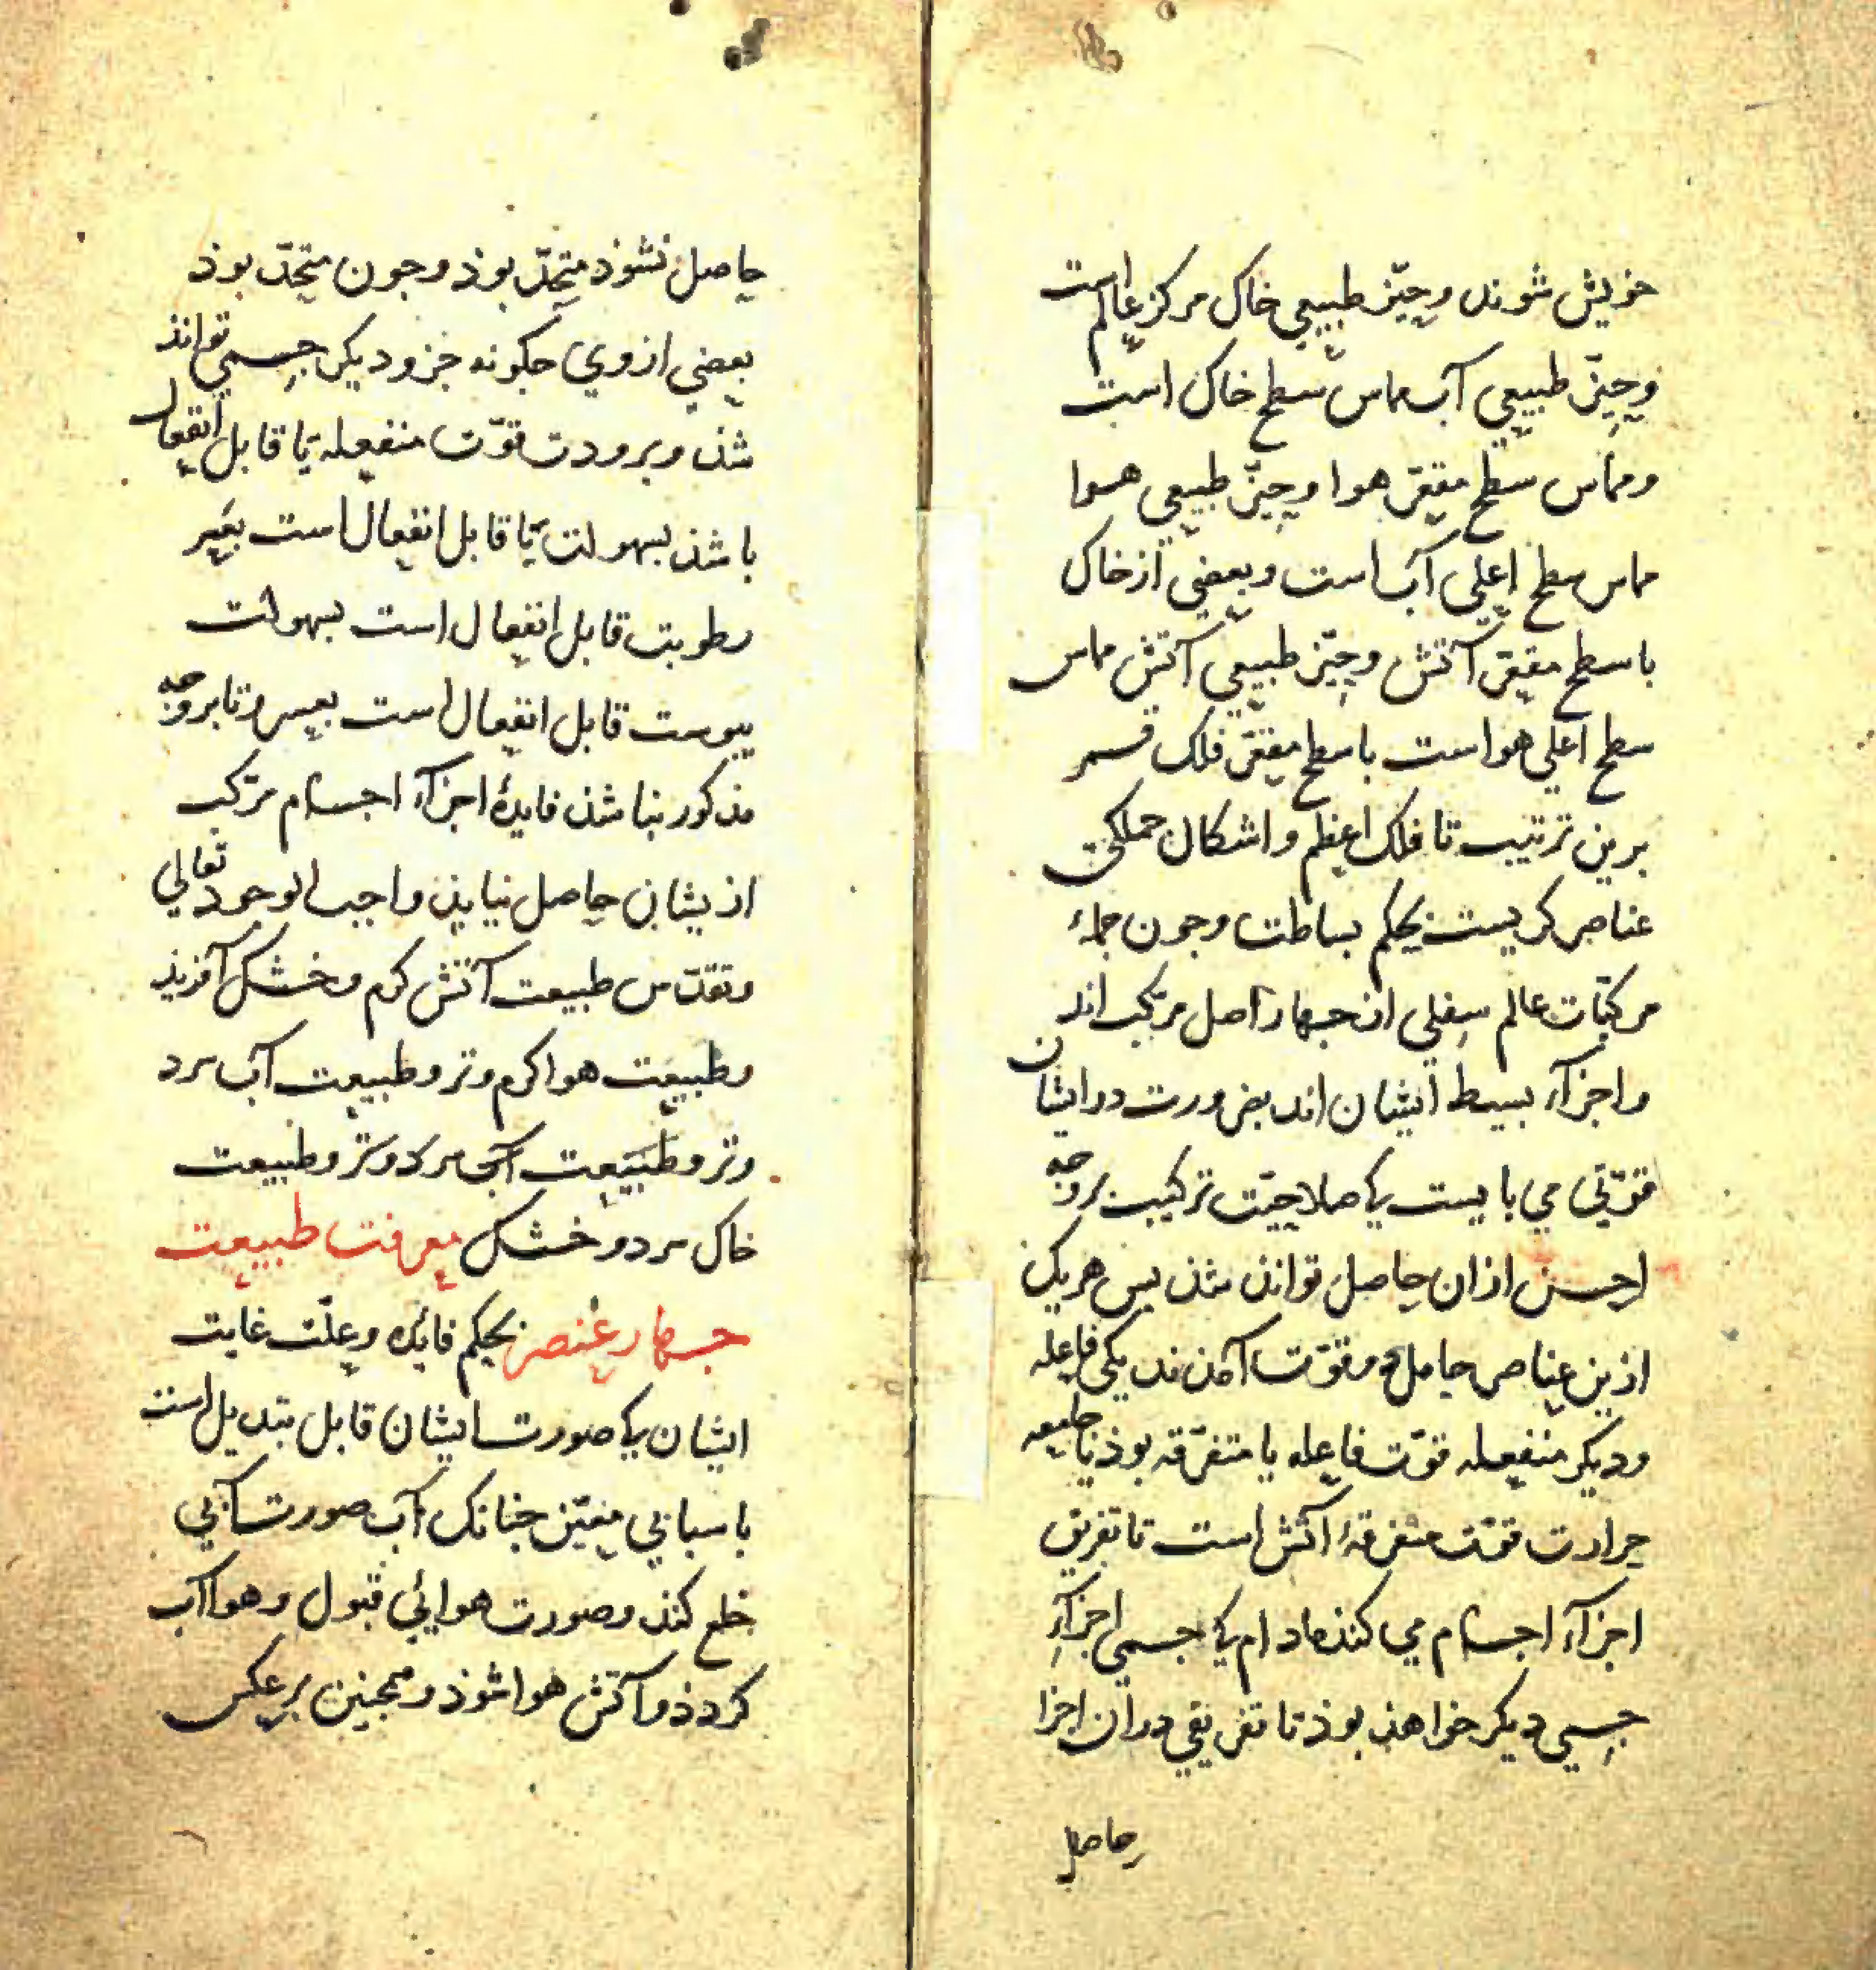 خویش شوند وحیّز طبیعي خاک مرکز عالم است
وحیّز طبیعي آب مماس سطح خاک است
ومماس سطح مقعّر هوا وحیّز طبیعي هوا
مماس سطح اعلي آب است وبعضي از خاک
با سطح مقعّر آتش وحیّز طبیعي آتش مماس
سطح اعلي هواست با سطح مقعّر فلک قمر
برین ترتیب تا فلک اعظم واشکال جملگي
عناصر کریست بحکم بساطت وجون جملهٔ
مرکبّات عالم سفلي از جهار اصل مرکب اند
واجزآء بسیط ایشان اند بضرورت در ایشان
قوّتي مي بایست کي صلاحیّت ترکیب بر وجه
احسن از ان حاصل تواند شذ بس هر یک
ازین عناصر حامل دو قوّت آمذند یکي فاعله
ودیکر منفعله قوّت فاعله یا متفرّقه بوذ یا
حرارت قوّت متفرقهٔ آتش است تا تفریق
اجزآء اجسام مي کند مادام کي جسمي اجزآء
جسمي دیکر خواهذ بوذ تا تفریقي در ان اجزا
حاصل
حاصل نشوذ متحدّ بوذ وجون متحدّ بوذ
بعضي از وي جکونه جزو دیکر جسمي تواند
شذ وبرودت قوّت منفعله یا قابل انفعال
باشذ بسهولت یا قابل انفعال است بعسر
رطوبت قابل انفعال است بسهولت
یبوست قابل انفعال است بعسر وتا بر وجه
مذکور نباشذ فایدهٔ اجزآء اجسام مرکب
از یشان حاصل نیاید واجب الوجود تعالي
وتقدّس طبیعت آتش کرم وخشک آفریذ
وطبیعت هوا کرم وتر وطبیعت آب سرد
وتر وطبیعت آب سرد وتر وطبیعت
خاک سرد وخشک معرفت طبیعت
جهار عنصر بحکم فایده وعلّت غایت
ایشان کي صورت ایشان قابل تبدیل است
باسبابي معیّن جنانک آب صورت آبي
خلع کند وصورت هوایي قبول وهوا آب
کردذ وآتش هوا شوذ وهمجنین بر عکس